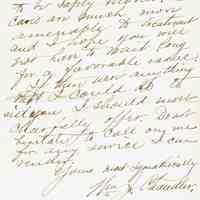 to be safely
cases are much more
amenable to treatment
and I hope you will
not have to wait long
for a favorable
If there was anything
that I could do to
aid you I should most
cheerfully offer. Dont
hesitate to call on me
for any service I can
render.
Yours most sympathetically
Wm. J. Chandler.